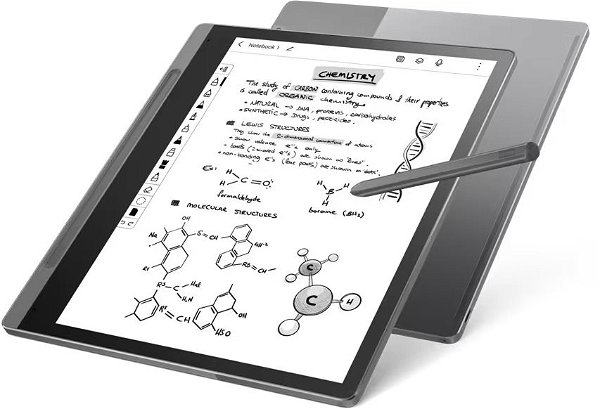 Notebook 1
CHEMISTRY
The study of CARBON containing compounds & their properties
is called ORGANIC chemistry.
• NATURAL → DNA, proteins, carbohydrates
• SYNTHETIC → Drugs, pesticides.
LEWIS STRUCTURES
They show the 2-dimensional connections of atoms
• show valence e⁻s only
• bonds (shared e⁻s) are shown as "lines"
• non-bonding e⁻s (lone pairs) are shown as dots.
Ex:
H C = O: H B H
H H
formaldehyde borane (BH₃)
MOLECULAR STRUCTURES
OH
Na S = CH
R1 R3 = CH
R3 C
H,N
OH
R² = CH
H2SO
C
C H